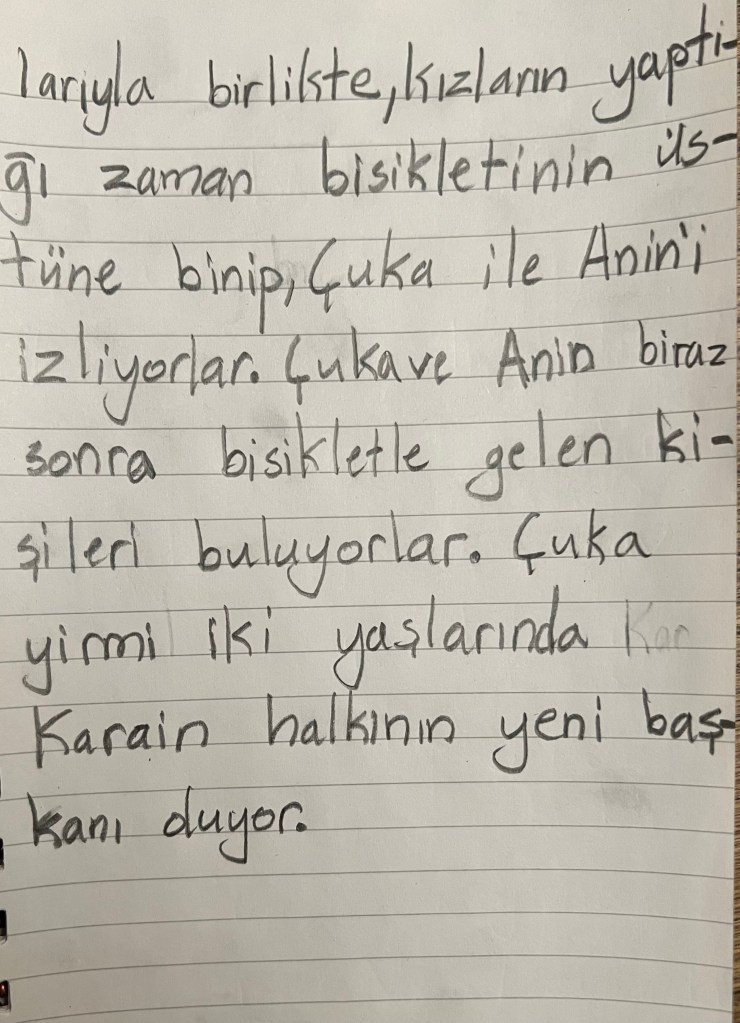 larıyla birlikte, kızların yaptı-
ğı zaman bisikletinin üs-
tüne binip, Çuka ile Anin'i
izliyorlar. Çuka ve Anin biraz
sonra bisikletle gelen ki-
şileri buluyorlar. Çuka
yirmi iki yaşlarında Kar
Karain halkının yeni baş-
kanı oluyor.